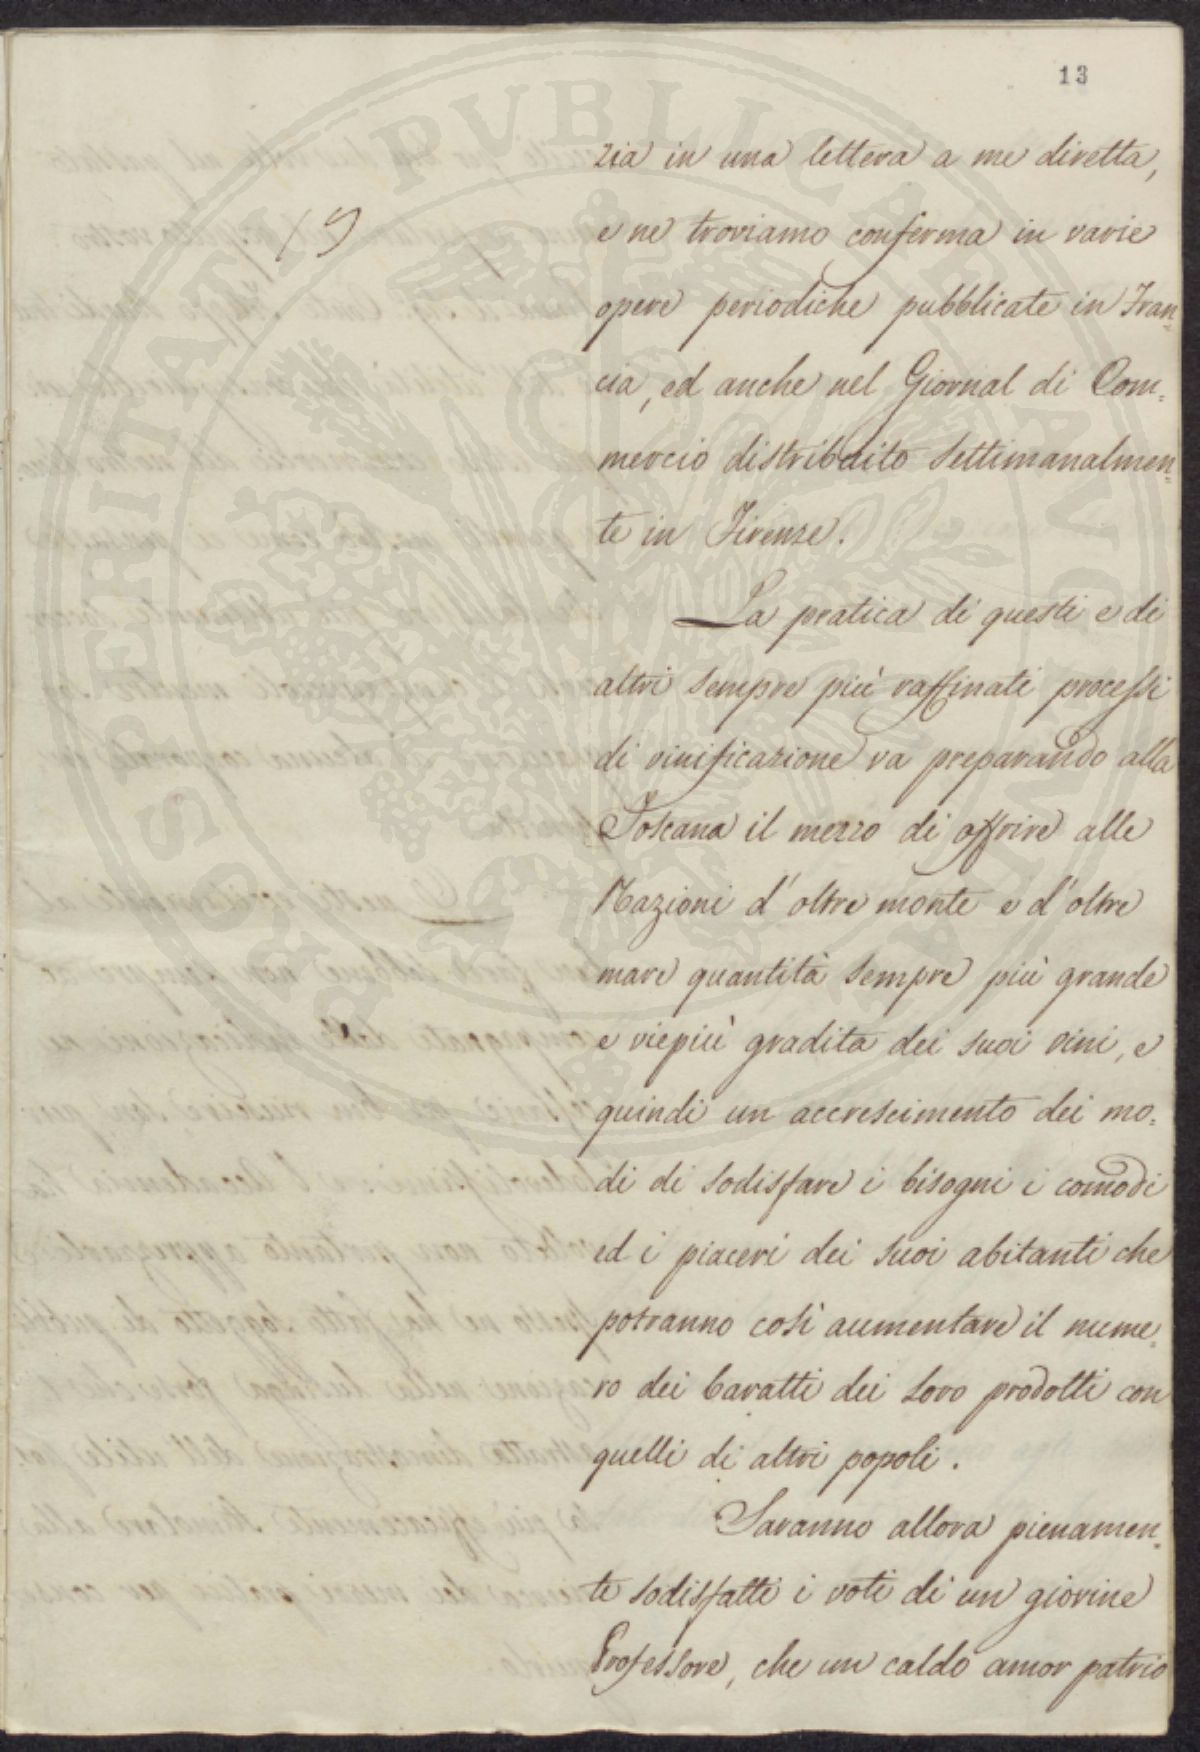 13
13
zia in una lettera a me diretta,
e ne troviamo conferma in varie
opere periodiche pubblicate in Fran=
cia, ed anche nel Giornal di Com=
mercio distribuito settimanalmen=
te in Firenze.
La pratica di questi e di
altri sempre più raffinati processi
di vinificazione va preparando alla
Toscana il mezzo di offrire alle
Nazioni d'oltre monte e d'oltre
mare quantità sempre più grande
e viepiù gradita dei suoi vini, e
quindi un accrescimento dei mo=
di di sodisfare i bisogni i comodi
ed i piaceri dei suoi abitanti che
potranno così aumentare il nume=
ro dei baratti dei loro prodotti con
quelli di altri popoli.
Saranno allora pienamen=
te sodisfatti i voti di un giovine
Professore, che un caldo amor patrio
PROSPERITATI PUBLICAE AUGENDAE